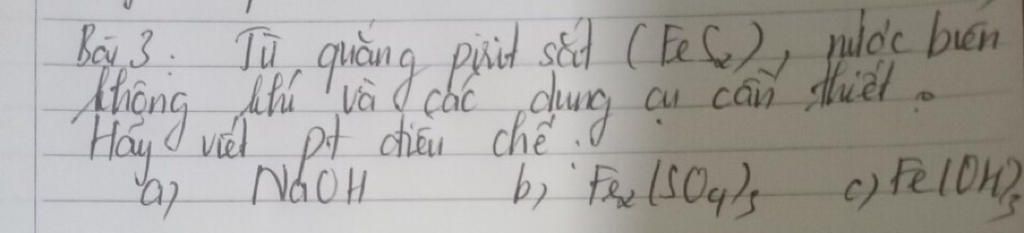 Bài 3. Từ quặng pirit sắt (FeS₂), nước biển
không khí và các dụng cụ cần thiết.
Hãy viết pt điều chế.
a) NaOH b) Fe₂(SO₄)₃ c) Fe(OH)₃